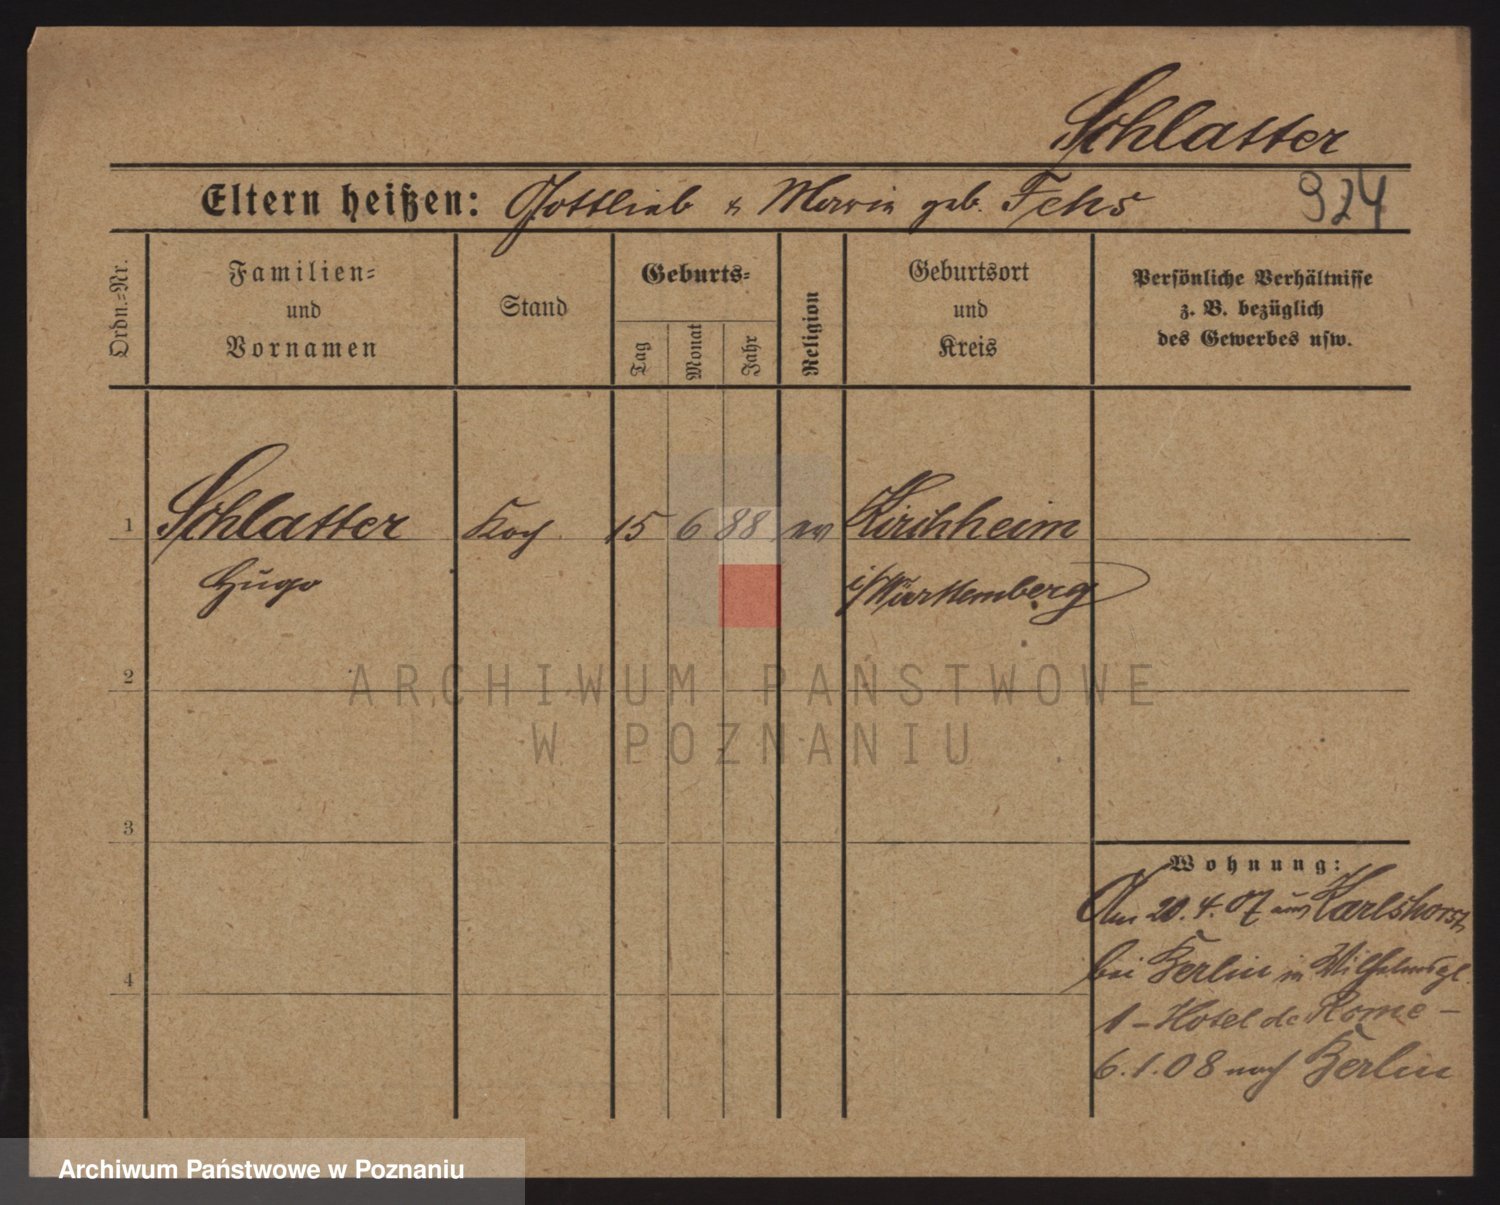 Schlatter
Eltern heißen: Gottlieb & Maria geb. Fehs
924
Ordn.-Nr.
Familien-
und
Vornamen
Stand
Geburts-
Tag
Monat
Jahr
Religion
Geburtsort
und
Kreis
Persönliche Verhältnisse
z. B. bezüglich
des Gewerbes usw.
1 Schlatter Koch 15 6 88 ev Kirchheim
Hugo i/Württemberg
ARCHIWUM PAŃSTWOWE
W POZNANIU
2
3
4
Wohnung:
Am 20.4.07 aus Karlshorst
bei Berlin in Wilhelmspl.
1 - Hotel de Rome -
6.1.08 nach Berlin
Archiwum Państwowe w Poznaniu